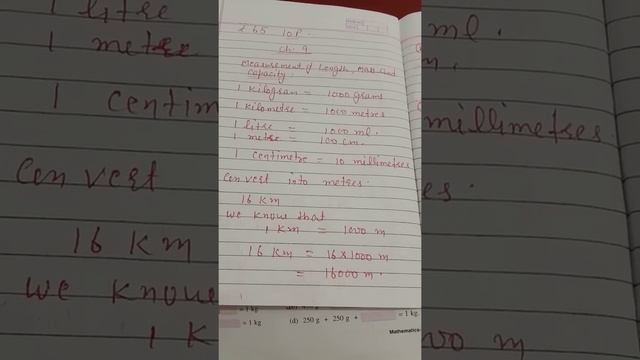 Ch. 9
Measurement of Length, Mass and
Capacity
1 Kilogram = 1000 grams
1 Kilometre = 1000 metres
1 litre = 1000 ml.
1 metre = 100 cm.
1 centimetre = 10 millimetres
Convert into metres.
16 KM
We know that
1 KM = 1000 m
16 KM = 16 × 1000 m
= 16000 m.
= 1 kg
= 1 kg
= 1 kg
(d) 250 g + 250 g +
Mathematics